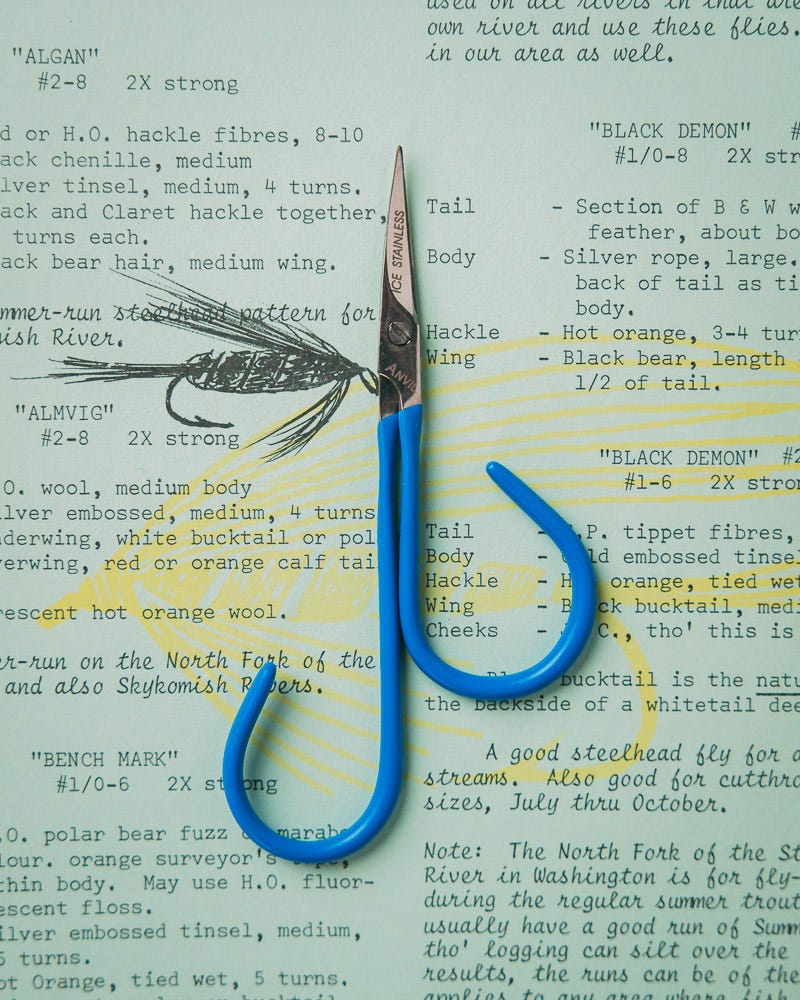 "ALGAN"
#2-8 2X strong
d or H.O. hackle fibres, 8-10
ack chenille, medium
lver tinsel, medium, 4 turns.
ack and Claret hackle together,
turns each.
ack bear hair, medium wing.
mmer-run steelhead pattern for
ish River.
"ALMVIG"
#2-8 2X strong
O. wool, medium body
lver embossed, medium, 4 turns
derwing, white bucktail or pol
erwing, red or orange calf tai
rescent hot orange wool.
er-run on the North Fork of the
and also Skykomish Rivers.
"BENCH MARK"
#1/0-6 2X strong
.O. polar bear fuzz marabo
lour. orange surveyor's tape,
thin body. May use H.O. fluor-
escent floss.
ilver embossed tinsel, medium,
5 turns.
ot Orange, tied wet, 5 turns.
ICE STAINLESS
ANVIL
used on all rivers in that are
own river and use these flies.
in our area as well.
"BLACK DEMON" #
#1/0-8 2X str
Tail - Section of B & W w
feather, about bo
Body - Silver rope, large.
back of tail as ti
body.
Hackle - Hot orange, 3-4 tur
Wing - Black bear, length
1/2 of tail.
"BLACK DEMON" #2
#1-6 2X stron
Tail - .P. tippet fibres,
Body - ld embossed tinsel
Hackle - H orange, tied wet
Wing - B ck bucktail, medi
Cheeks - C., tho' this is
bucktail is the natu
the backside of a whitetail dee
A good steelhead fly for a
streams. Also good for cutthro
sizes, July thru October.
Note: The North Fork of the St
River in Washington is for fly-
during the regular summer trout
usually have a good run of Summ
tho' logging can silt over the
results, the runs can be of the
applies to any area where fish